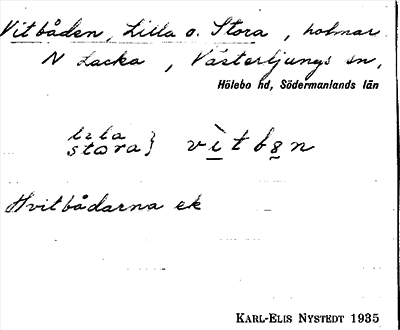 Vitbåden, Lilla o. Stora, holmar
N Lacka, Västerljungs sn,
Hölebo hd, Södermanlands län
lila
stora} vìtbǝn
Hvitbådarna ek
KARL-ELIS NYSTEDT 1935